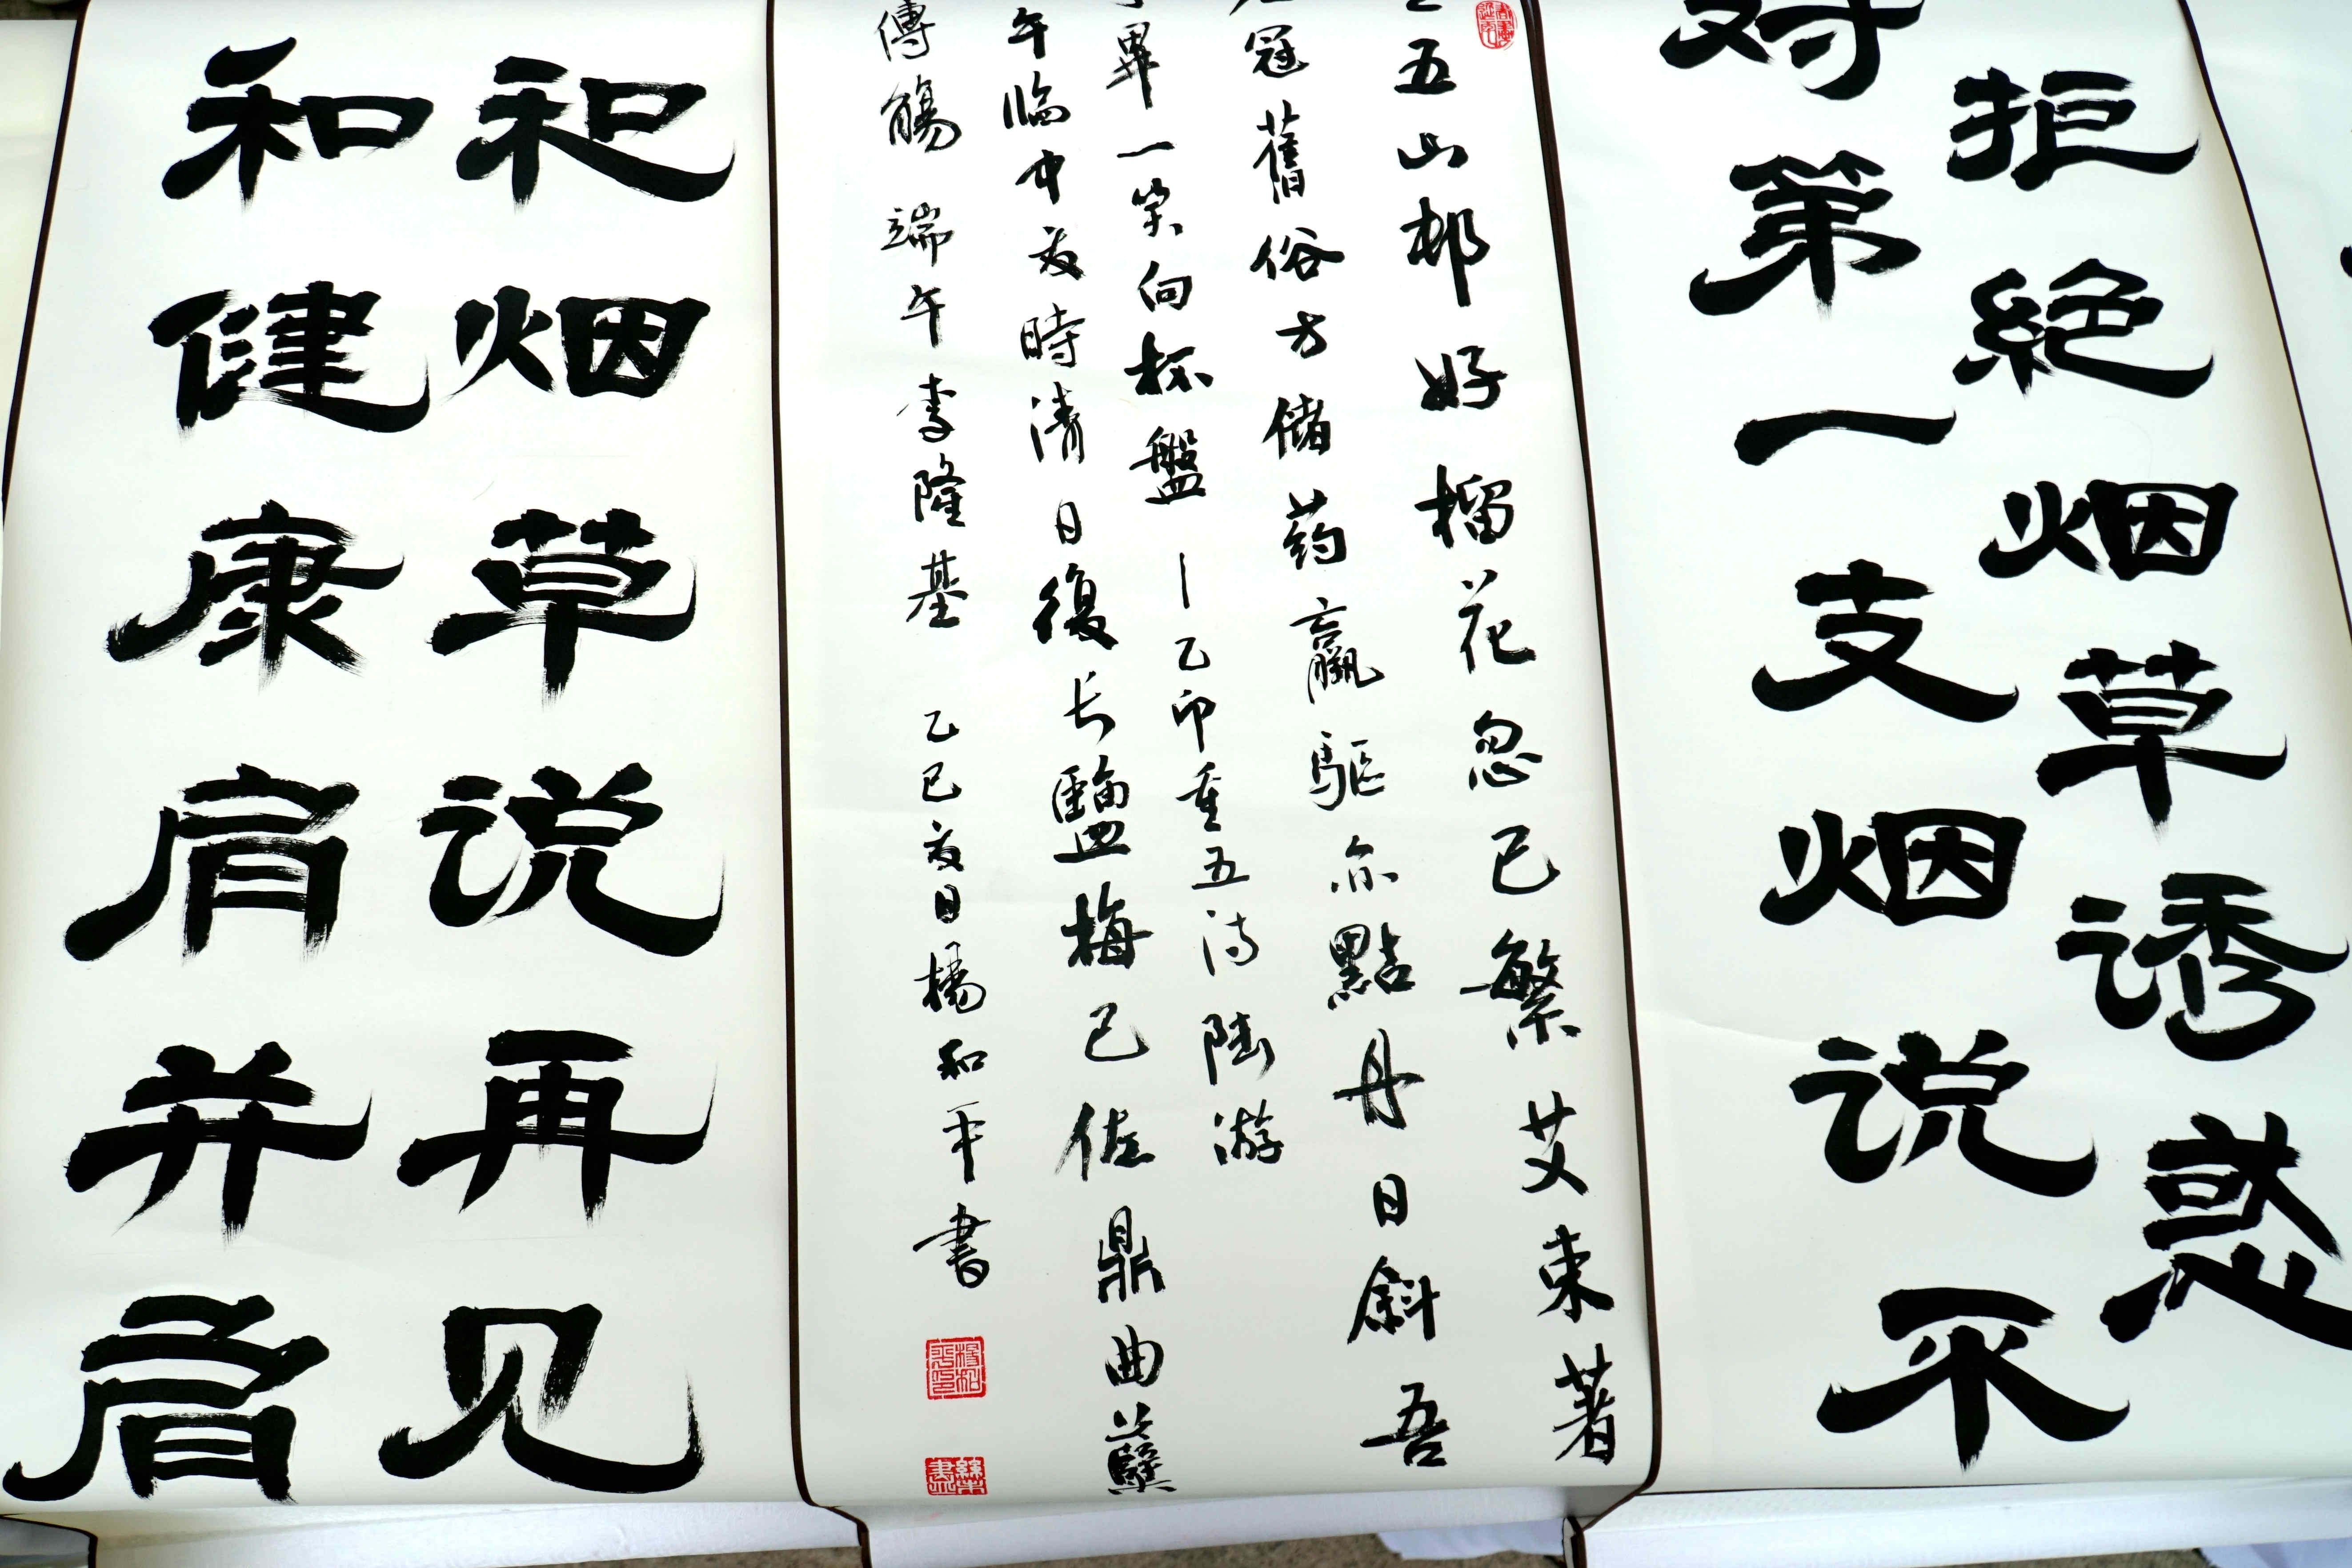 拒絶烟草诱惑
对第一支烟说不
五山邨好榴花忽已繁艾束著
冠舊俗方儲药羸驅亦點丹日斜吾
畢一笑向杯盤 — 乙卯重五诗 陆游
午临中夏時清日復长鹽梅已佐鼎曲糵
傳觴 端午 李隆基 乙巳夏日楊和平書
和烟草说再见
和健康肩并肩